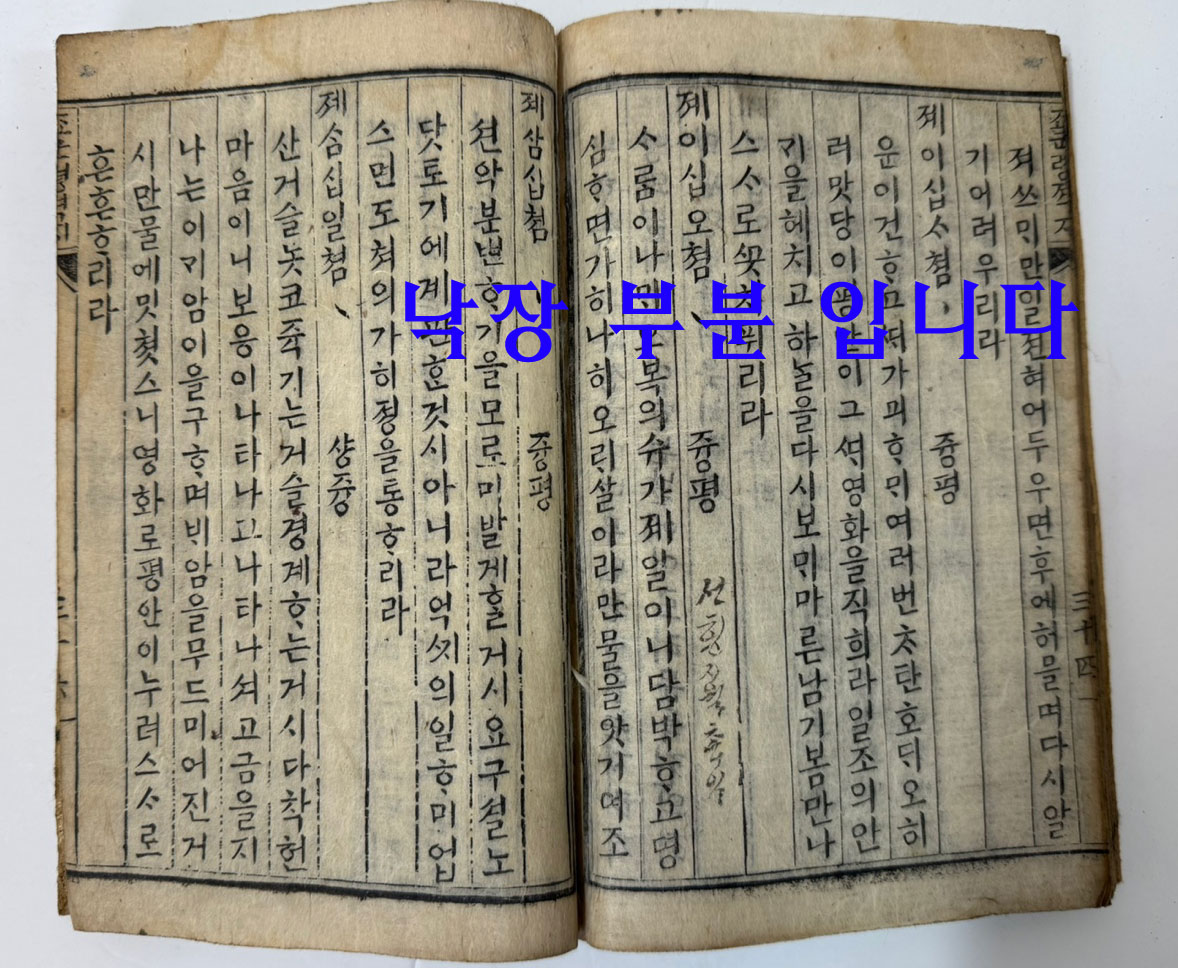 져쓰ᄆᆡ만일젼혀어두우면후에허믈며다시알
기어려우리라
제이십ᄉᆞ쳠
즁평
운이건ᄒᆞ고ᄯᅢ가괴ᄒᆞᄆᆡ여러번ᄎᆞ탄호ᄃᆡ오히
러맛당이 이그 영화을직희라일조의안
ᄀᆡ을헤치고하ᄂᆞᆯ을다시보ᄆᆡ마른남기봄만나
스ᄉᆞ로 리라
제이십오쳠
즁평
사ᄅᆞᆷ이나 복의슈가제일이니담박ᄒᆞ고명
심ᄒᆞ면가히나히오ᄅᆡ살이라만물을앗기여조
三十四
제삼십쳠
즁평
션악분변ᄒᆞ기을모로ᄆᆡ발게ᄒᆞᆯ거시요구셜노
닷토기에계 ᄒᆞᆫ것시아니라억 의일ᄒᆞᄆᆡ업
스면도쳐의가히졍을통ᄒᆞ리라
제삼십일쳠
샹즁
산거슬놋코쥭기는거슬경계ᄒᆞ는거시다착헌
마음이니보응이나타나고나타나셔고금을지
나는이ᄀᆡ암이을구ᄒᆞ며ᄇᆡ암을무드미어진거
시만물에밋쳣스니영화로평안이누려스ᄉᆞ로
흔흔ᄒᆞ리라
낙장 부분 입니다